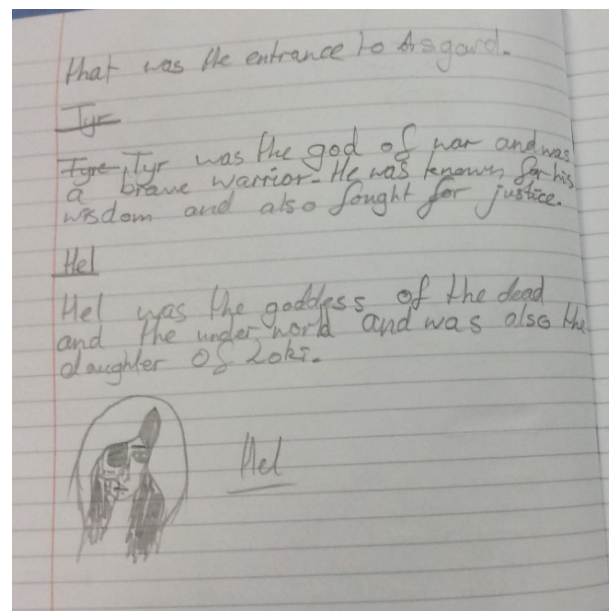 that was the entrance to Asgard.
Tyr
Tyre Tyr was the god of war and was
a brave warrior. He was known for his
wisdom and also fought for justice.
Hel
Hel was the goddess of the dead
and the under world and was also the
daughter of Loki.
Hel